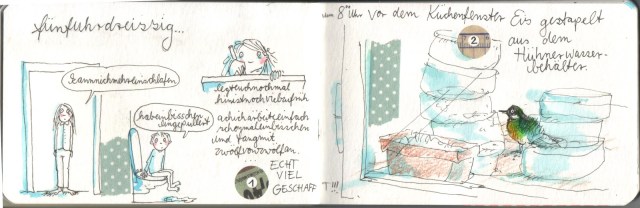 fünfuhrdreissig...
kannnichmehreinschlafen
habeinbisschen
eingepullert
legteuchnochmal
hinistnochvielzufrüh
achicharbeiteinfach
schonmaleinbisschen
und fangmit
zwölfvonzwölfan.
... ECHT
1 VIEL
GESCHAFFT!!!
um 8 Uhr vor dem Küchenfenster Eis gestapelt
2 aus dem
Hühnerwasser-
behälter.